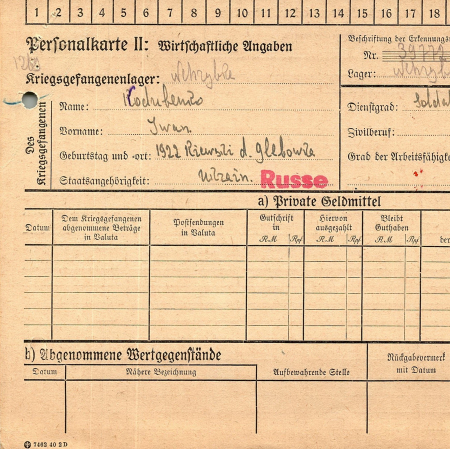 1 2 3 4 5 6 7 8 9 10 11 12 13 14 15 16 17 18
Personalkarte II: Wirtschaftliche Angaben
Beschriftung der Erkennungs
Nr. 39772
Kriegsgefangenenlager:
Lager:
Des Kriegsgefangenen
Name: Kodubenko
Dienstgrad: Soldat
Vorname: Iwan.
Zivilberuf:
Geburtstag und -ort: 1922 Kiewski d. Glebowka
Grad der Arbeitsfähigk
Staatsangehörigkeit: Ukrain. Russe
a) Private Geldmittel
Datum
Dem Kriegsgefangenen abgenommene Beträge in Valuta
Postsendungen in Valuta
Gutschrift in
Hiervon ausgezahlt
Bleibt Guthaben
der
RM Rpf RM Rpf RM Rpf
b) Abgenommene Wertgegenstände
Rückgabevermerk mit Datum
Datum Nähere Bezeichnung Aufbewahrende Stelle
7462 40 2 D